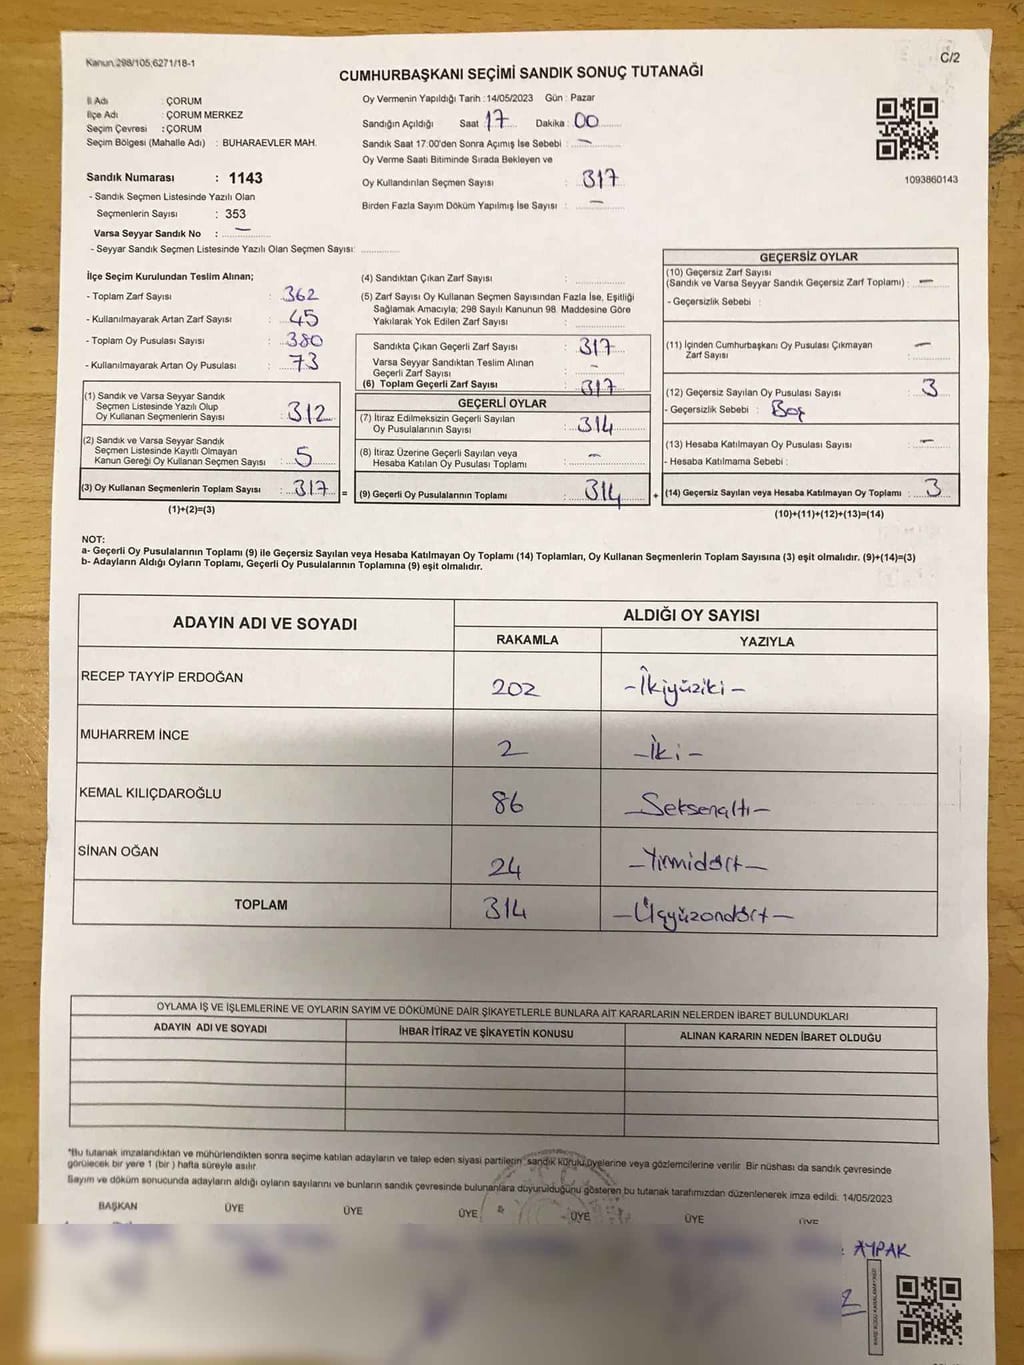 Kanun,298/105,6271/18-1
C/2
CUMHURBAŞKANI SEÇİMİ SANDIK SONUÇ TUTANAĞI
İl Adı : ÇORUM
İlçe Adı : ÇORUM MERKEZ
Seçim Çevresi : ÇORUM
Seçim Bölgesi (Mahalle Adı) : BUHARAEVLER MAH.
Sandık Numarası : 1143
- Sandık Seçmen Listesinde Yazılı Olan
Seçmenlerin Sayısı : 353
Varsa Seyyar Sandık No : —
- Seyyar Sandık Seçmen Listesinde Yazılı Olan Seçmen Sayısı:
Oy Vermenin Yapıldığı Tarih : 14/05/2023 Gün : Pazar
Sandığın Açıldığı Saat 17 Dakika : 00
Sandık Saat 17:00'den Sonra Açımış İse Sebebi : —
Oy Verme Saati Bitiminde Sırada Bekleyen ve
Oy Kullandırılan Seçmen Sayısı : 317
Birden Fazla Sayım Döküm Yapılmış İse Sayısı : —
1093860143
İlçe Seçim Kurulundan Teslim Alınan;
- Toplam Zarf Sayısı : 362
- Kullanılmayarak Artan Zarf Sayısı : 45
- Toplam Oy Pusulası Sayısı : 380
- Kullanılmayarak Artan Oy Pusulası : 73
(1) Sandık ve Varsa Seyyar Sandık
Seçmen Listesinde Yazılı Olup
Oy Kullanan Seçmenlerin Sayısı : 312
(2) Sandık ve Varsa Seyyar Sandık
Seçmen Listesinde Kayıtlı Olmayan
Kanun Gereği Oy Kullanan Seçmen Sayısı : 5
(3) Oy Kullanan Seçmenlerin Toplam Sayısı : 317 =
(1)+(2)=(3)
(4) Sandıktan Çıkan Zarf Sayısı :
(5) Zarf Sayısı Oy Kullanan Seçmen Sayısından Fazla İse, Eşitliği
Sağlamak Amacıyla; 298 Sayılı Kanunun 98. Maddesine Göre
Yakılarak Yok Edilen Zarf Sayısı :
Sandıkta Çıkan Geçerli Zarf Sayısı : 317
Varsa Seyyar Sandıktan Teslim Alınan
Geçerli Zarf Sayısı : -
(6) Toplam Geçerli Zarf Sayısı : 317
GEÇERLİ OYLAR
(7) İtiraz Edilmeksizin Geçerli Sayılan
Oy Pusulalarının Sayısı : 314
(8) İtiraz Üzerine Geçerli Sayılan veya
Hesaba Katılan Oy Pusulası Toplamı : —
(9) Geçerli Oy Pusulalarının Toplamı : 314 +
GEÇERSİZ OYLAR
(10) Geçersiz Zarf Sayısı
(Sandık ve Varsa Seyyar Sandık Geçersiz Zarf Toplamı) : —
- Geçersizlik Sebebi :
(11) İçinden Cumhurbaşkanı Oy Pusulası Çıkmayan
Zarf Sayısı : —
(12) Geçersiz Sayılan Oy Pusulası Sayısı : 3
- Geçersizlik Sebebi : Boş
(13) Hesaba Katılmayan Oy Pusulası Sayısı : —
- Hesaba Katılmama Sebebi :
(14) Geçersiz Sayılan veya Hesaba Katılmayan Oy Toplamı : 3
(10)+(11)+(12)+(13)=(14)
NOT:
a- Geçerli Oy Pusulalarının Toplamı (9) ile Geçersiz Sayılan veya Hesaba Katılmayan Oy Toplamı (14) Toplamları, Oy Kullanan Seçmenlerin Toplam Sayısına (3) eşit olmalıdır. (9)+(14)=(3)
b- Adayların Aldığı Oyların Toplamı, Geçerli Oy Pusulalarının Toplamına (9) eşit olmalıdır.
ADAYIN ADI VE SOYADI
ALDIĞI OY SAYISI
RAKAMLA YAZIYLA
RECEP TAYYİP ERDOĞAN 202 -İkiyüziki-
MUHARREM İNCE 2 -İki-
KEMAL KILIÇDAROĞLU 86 -Seksenaltı-
SİNAN OĞAN 24 -Yirmidört-
TOPLAM 314 -Üçyüzondört-
OYLAMA İŞ VE İŞLEMLERİNE VE OYLARIN SAYIM VE DÖKÜMÜNE DAİR ŞİKAYETLERLE BUNLARA AİT KARARLARIN NELERDEN İBARET BULUNDUKLARI
ADAYIN ADI VE SOYADI İHBAR İTİRAZ VE ŞİKAYETİN KONUSU ALINAN KARARIN NEDEN İBARET OLDUĞU
*Bu tutanak imzalandıktan ve mühürlendikten sonra seçime katılan adayların ve talep eden siyasi partilerin sandık kurulu üyelerine veya gözlemcilerine verilir. Bir nüshası da sandık çevresinde
görülecek bir yere 1 (bir) hafta süreyle asılır.
Sayım ve döküm sonucunda adayların aldığı oyların sayılarını ve bunların sandık çevresinde bulunanlara duyurulduğunu gösteren bu tutanak tarafımızdan düzenlenerek imza edildi. 14/05/2023
BAŞKAN ÜYE ÜYE ÜYE ÜYE ÜYE ÜYE
: AYPAK